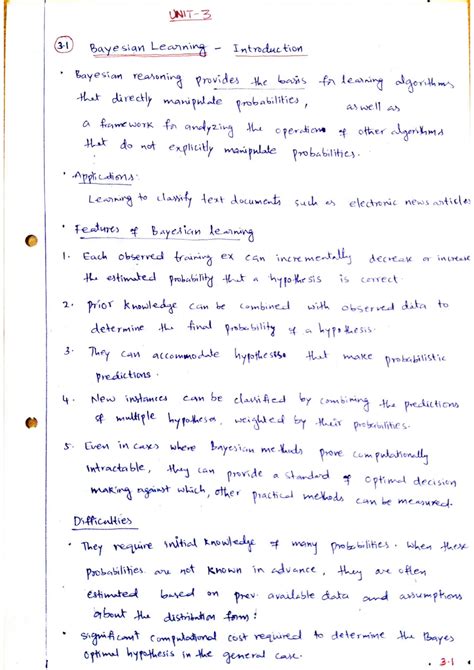 UNIT-3
3.1 Bayesian Learning - Introduction
• Bayesian reasoning provides the basis for learning algorithms
that directly manipulate probabilities, as well as
a framework for analyzing the operation of other algorithms
that do not explicitly manipulate probabilities.
• Applications:
Learning to classify text documents such as electronic news articles
• Features of Bayesian learning
1. Each observed training ex can incrementally decrease or increase
the estimated probability that a hypothesis is correct.
2. Prior knowledge can be combined with observed data to
determine the final probability of a hypothesis.
3. They can accommodate hypotheses that make probabilistic
predictions.
4. New instances can be classified by combining the predictions
of multiple hypotheses, weighted by their probabilities.
5. Even in cases where Bayesian methods prove computationally
intractable, they can provide a standard of optimal decision
making against which, other practical methods can be measured.
Difficulties
• They require initial knowledge of many probabilities. When these
probabilities are not known in advance, they are often
estimated based on prev. available data and assumptions
about the distribution form.
• significant computational cost required to determine the Bayes
optimal hypothesis in the general case.
3.1